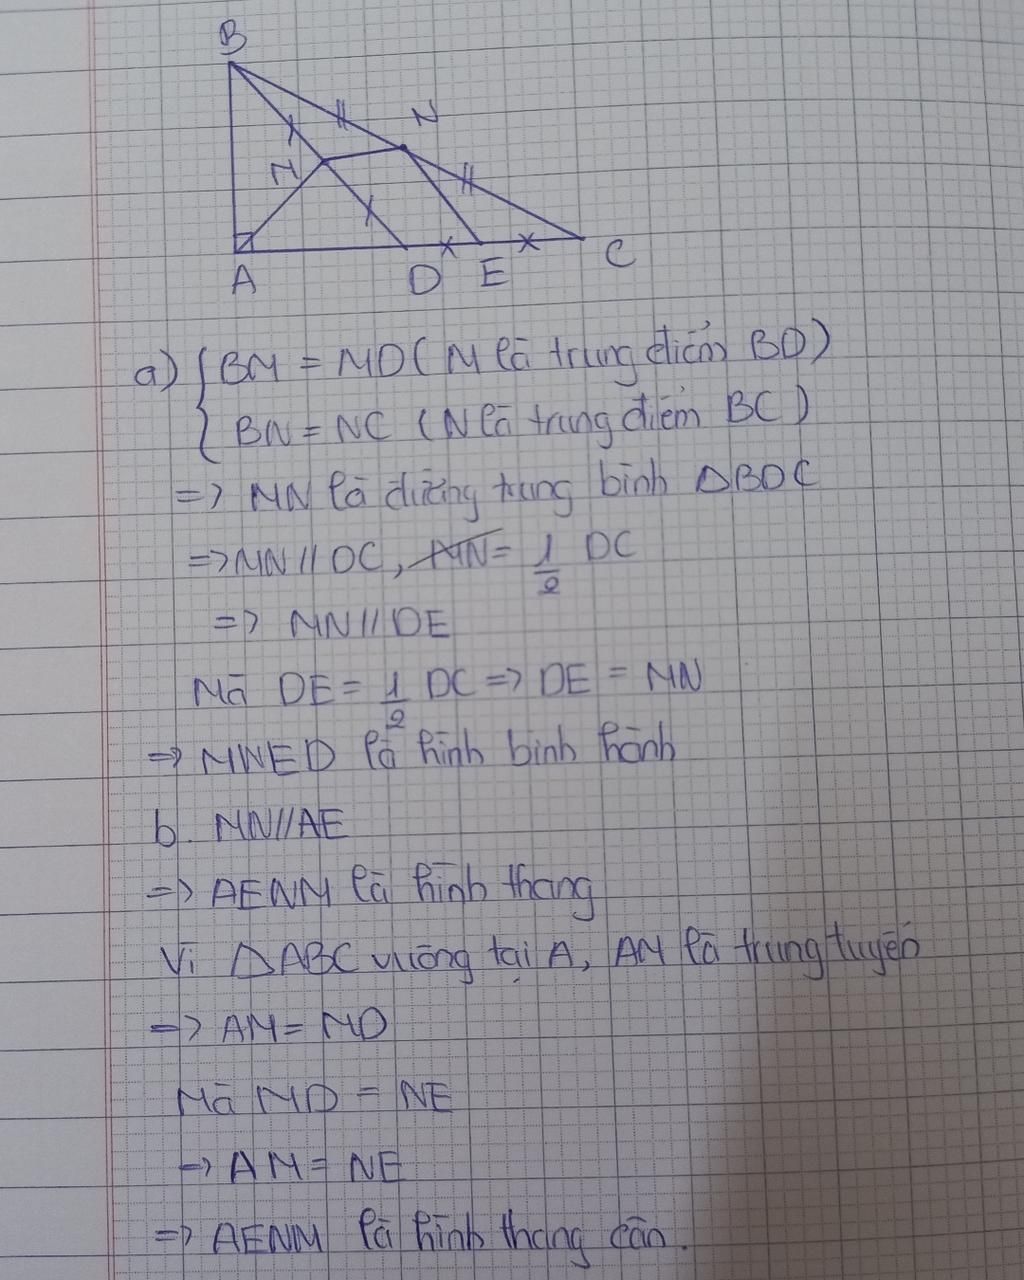 B
N
M
A
D
E
C
a) { BM = MD ( M là trung điểm BD )
BN = NC ( N là trung điểm BC )
=> MN là đường trung bình ΔBDC
=> MN // DC, MN = 1/2 DC
=> MN // DE
Mà DE = 1/2 DC => DE = MN
=> MNED là hình bình hành
b. MN//AE
=> AENM là hình thang
Vì ΔABC vuông tại A, AM là trung tuyến
=> AM = MD
Mà MD = NE
=> AM = NE
=> AENM là hình thang cân.